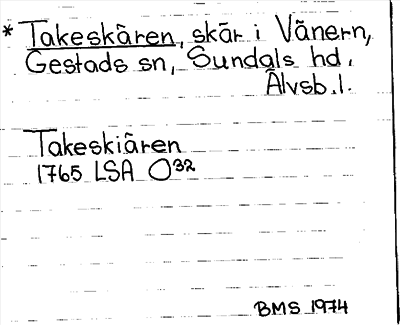 * Takeskären, skär i Vänern,
Gestads sn, Sundals hd.
Älvsb. l.
Takeskiären
1765 LSA O32
BMS 1974